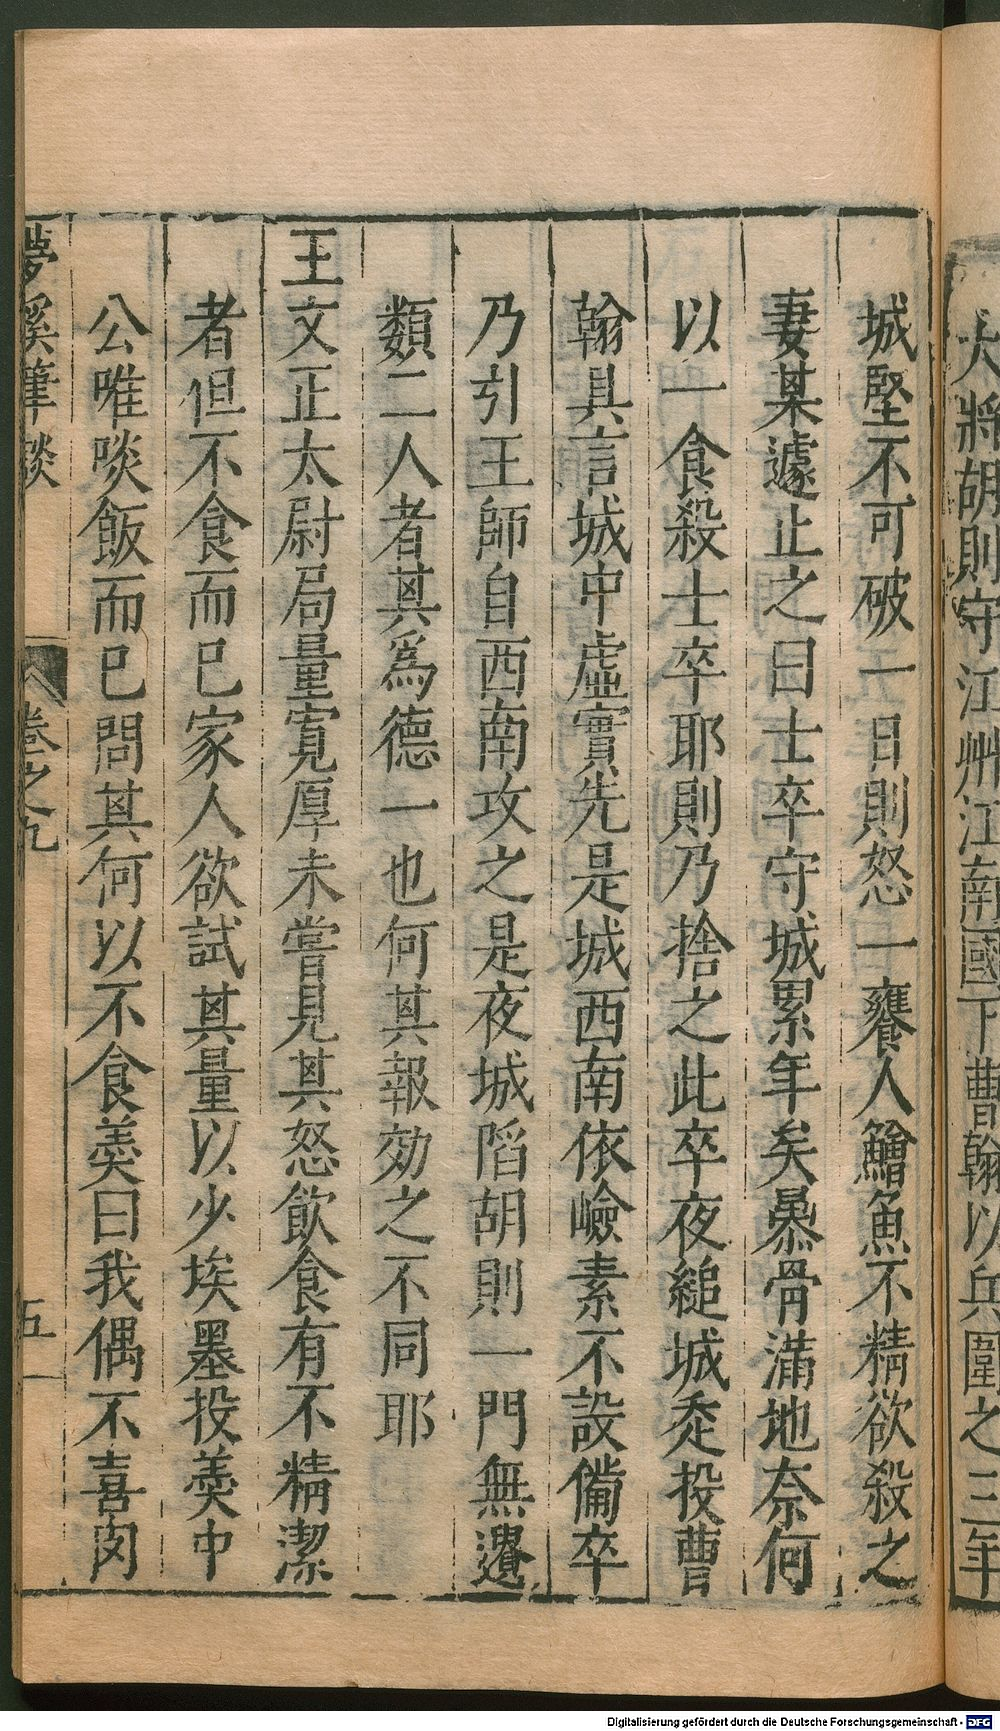 大將胡則守江州江南國下曹翰以兵圍之三年
城堅不可破一日則怒一饔人鱠魚不精欲殺之
妻某遽止之曰士卒守城累年矣暴骨滿地奈何
以一食殺士卒耶則乃捨之此卒夜縋城走投曹
翰具言城中虛實先是城西南依嶮素不設備卒
乃引王師自西南攻之是夜城陷胡則一門無遺
類二人者其爲德一也何其報効之不同耶
王文正太尉局量寬厚未嘗見其怒飲食有不精潔
者但不食而已家人欲試其量以少埃墨投羹中
公唯啖飯而已問其何以不食羹曰我偶不喜肉
夢溪筆談 卷之九 五
Digitalisierung gefördert durch die Deutsche Forschungsgemeinschaft - DFG